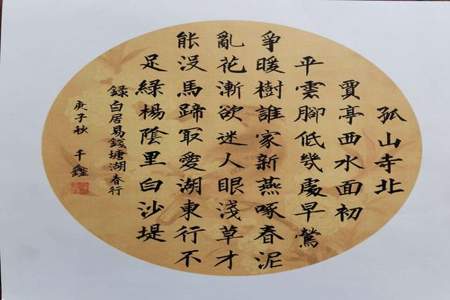 孤山寺北
賈亭西水面初
平雲腳低幾處早鶯
爭暖樹誰家新燕啄春泥
亂花漸欲迷人眼淺草才
能沒馬蹄最愛湖東行不
足綠楊蔭里白沙堤
錄白居易錢塘湖春行
庚子秋 千鑫